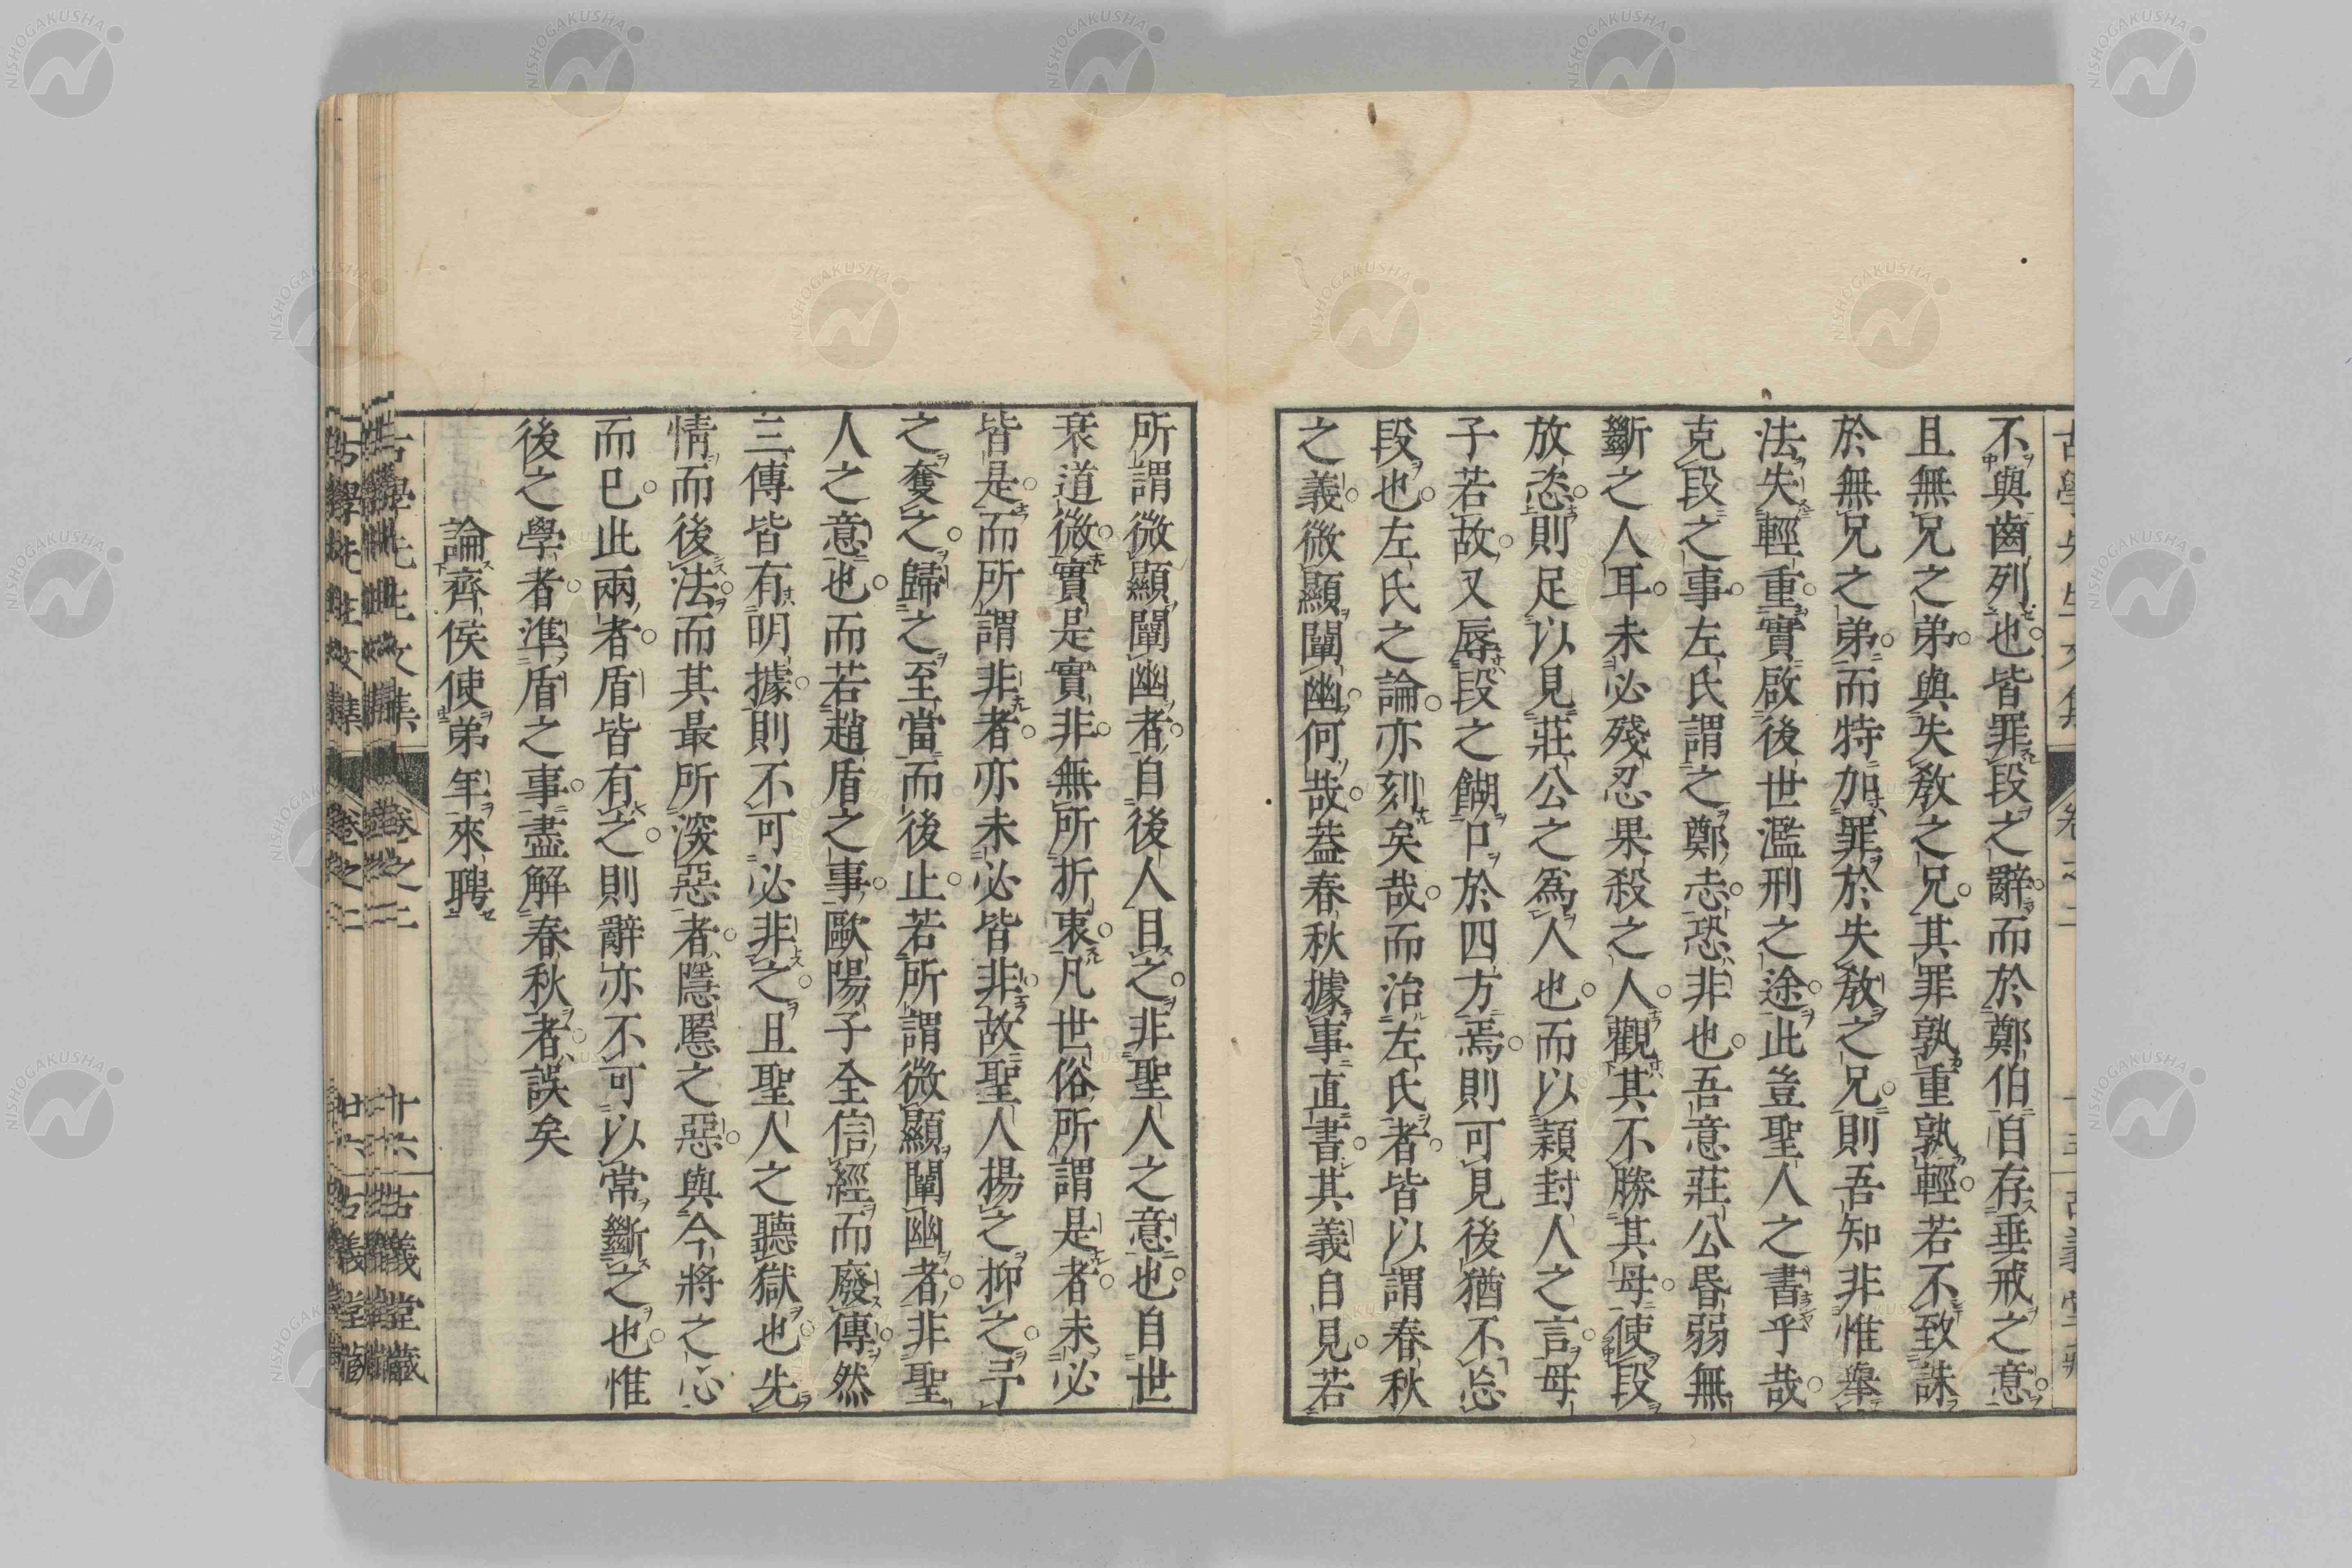 不與齒列也皆罪段之辭而於鄭伯自存垂戒之意
且無兄之弟與失敎之兄其罪孰重孰輕若不致誅
於無兄之弟而特加罪於失敎之兄則吾知非惟舉
法失輕重實啟後世濫刑之途此豈聖人之書乎哉
克段之事左氏謂之鄭志恐非也吾意莊公昏弱無
斷之人耳未必殘忍果殺之人觀其不勝其母使段
放恣則足以見莊公之爲人也而以穎封人之言母
子若故又辱段之餬口於四方焉則可見後猶不忘
段也左氏之論亦刻矣哉而治左氏者皆以謂春秋
之義微顯闡幽何哉蓋春秋據事直書其義自見若
所謂微顯闡幽者自後人目之非聖人之意也自世
衰道微實是實非無所折衷凡世俗所謂是者未必
皆是而所謂非者亦未必皆非故聖人揚之抑之予
之奪之歸之至當而後止若所謂微顯闡幽者非聖
人之意也而若趙盾之事歐陽子全信經而廢傳然
三傳皆有明據則不可必非之且聖人之聽獄也先
情而後法而其最所深惡者隱慝之惡與今將之心
而已此兩者盾皆有之則辭亦不可以常斷之也惟
後之學者準盾之事盡解春秋者誤矣
論齊侯使弟年來聘
古學先生文集 卷之二 十六 古義堂藏
NISHOGAKUSHA